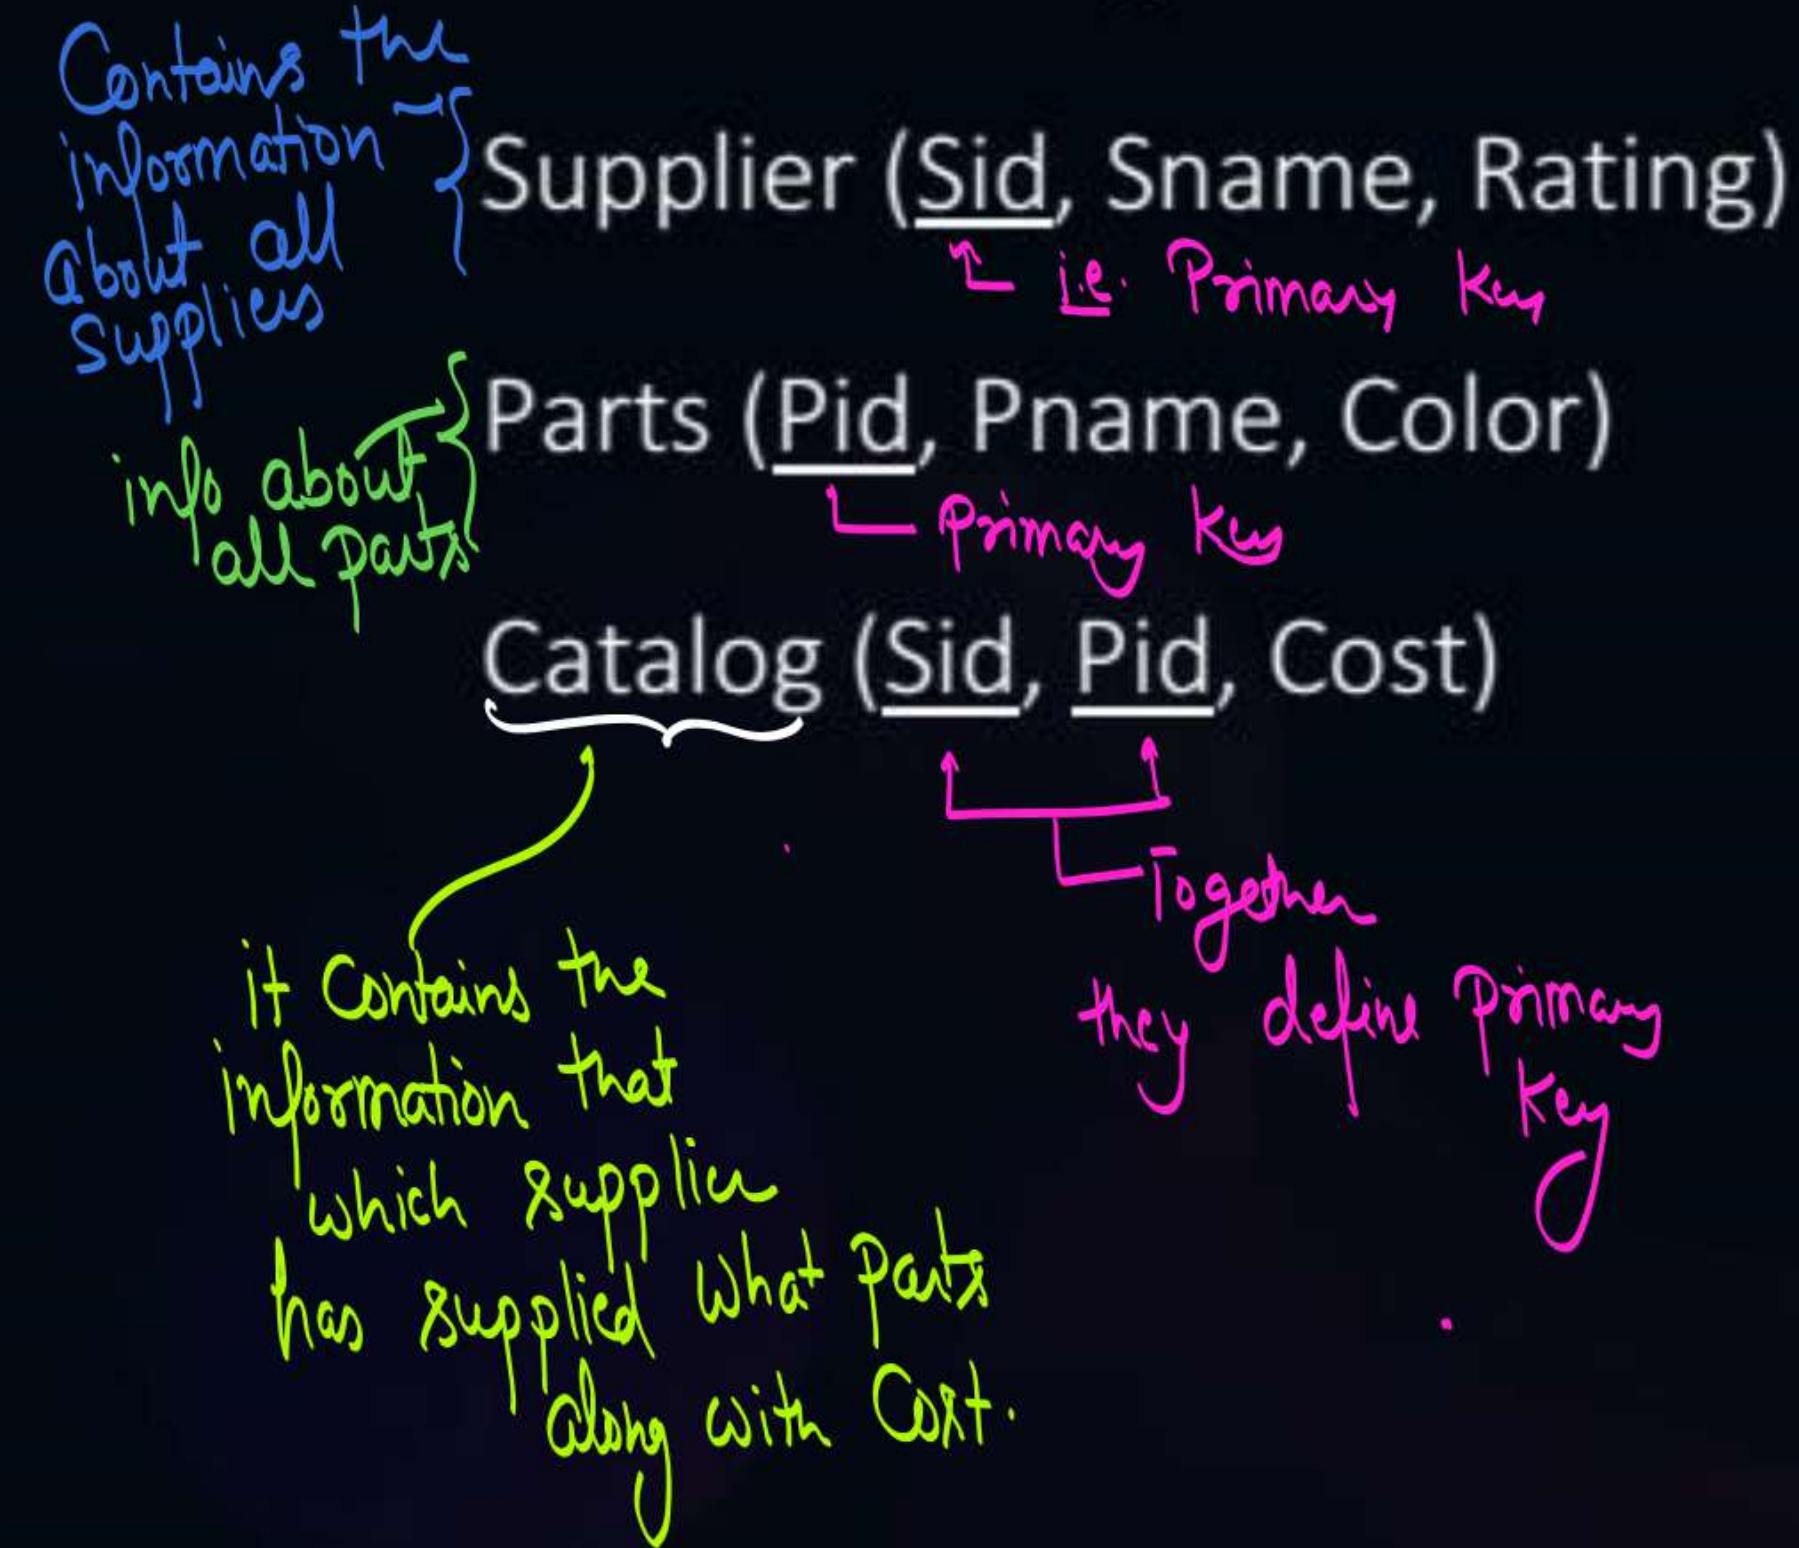 Contains the
information
about all
suppliers
Supplier (Sid, Sname, Rating)
i.e. Primary Key
info about
all parts
Parts (Pid, Pname, Color)
Primary Key
Catalog (Sid, Pid, Cost)
Together
they define primary
key
it contains the
information that
which supplier
has supplied what parts
along with cost.